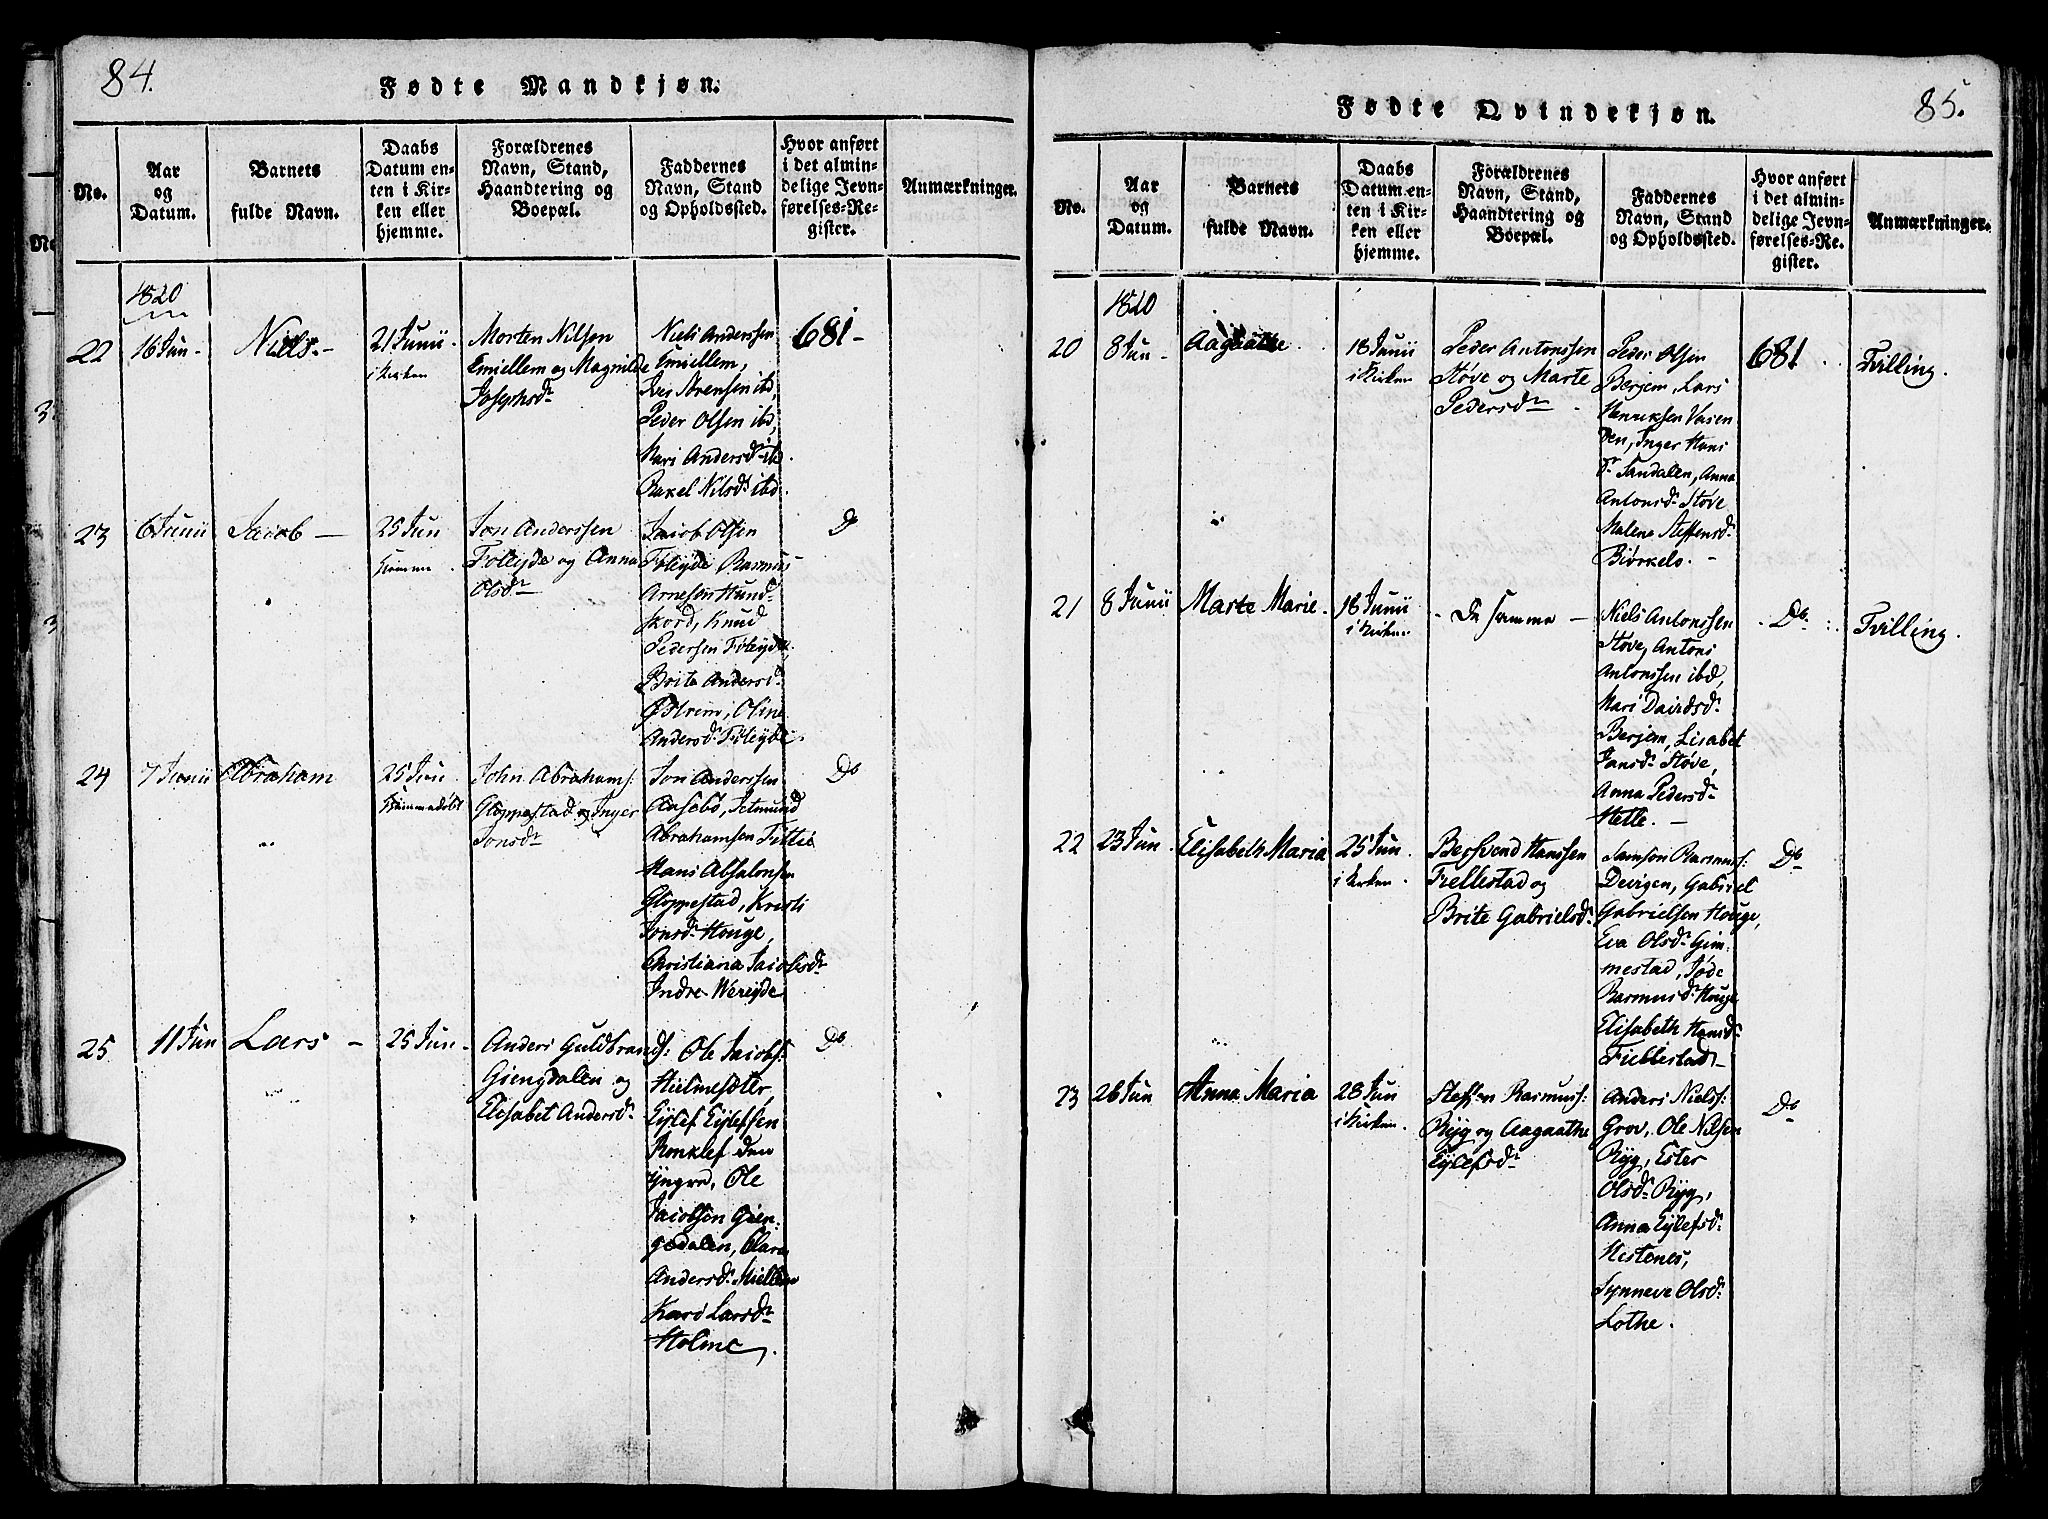 84.
Fødte Mandkjøn.
No.
Aar
og
Datum.
Barnets
fulde Navn.
Daabs
Datum en-
ten i Kir-
ken eller
hjemme.
Forældrenes
Navn, Stand,
Haandtering og
Boepæl.
Faddernes
Navn, Stand
og Opholdssted.
Hvor anført
i det almin-
delige Jevn-
førelses-Re-
gister.
Anmærkninger.
1820
22
16 Jun -
Niels -
21 Junii
i Kirken
Morten Nilsen
Emiellem og Magnilde
Josephsdr
Niels Anderssen
Emiellem,
Iver Sørensen ibd,
Peder Olsen ibd,
Mari Andersdr ibd.
Rakel Nilsdr ibd.
681 -
23
6 Junii
Jacob -
25 Jun
Hiemme
Jon Anderssen
Føleyde og Anna
Olsdr
Jacob Olsen
Føleyde Rasmus
Arnesen Hund-
skord, Knud
Pedersen Føleyde,
Brite Andersdr
Østrem, Oline
Andersdr Føleyde
Do
24
7 Junii
Abraham
25 Jun
Hiemmedøbt
John Abrahams:
Gloppestad og Inger
Jonsdr
Jon Anderssen
Aasebø, Jetmund
Abrahamsen Fittie
Hans Absalonsen
Gloppestad, Kristi
Jonsdr Houge,
Christiana Jacobsdr
Indre Wereyde
Do
25.
11 Jun
Lars -
25 Jun -
Anders Guldbrands:
Giengdalen og
Elisabet Andersdr
Ole Jacobs:
Hielmesæter,
Eylef Eylefsen
Ronklef den
yngre, Ole
Jacobsen Gien-
gedalen,
Andersdr Miellem
Kari Larsdr
Holme
Do
85.
Fødte Qvindekjøn.
No.
Aar
og
Datum.
Barnets
fulde Navn.
Daabs
Datum en-
ten i Kir-
ken eller
hjemme.
Forældrenes
Navn, Stand,
Haandtering og
Boepæl.
Faddernes
Navn, Stand
og Opholdssted.
Hvor anført
i det almin-
delige Jevn-
førelses-Re-
gister.
Anmærkninger.
1820
20
8 Jun -
Aagaathe
18 Junii
i Kirken
Peder Antonssen
Støve og Marte
Pedersdr
Peder Olsen
Berjem, Lars
Henriksen Vasen-
den, Inger Hans
dr Sandalen, Anna
Antonsdr Støve
Malene Steffensdr
Biørkelo. -
681.
Tvilling.
21
8 Junii
Marte Marie.
18 Junii
i Kirken
- De samme -
Niels Antonssen
Støve, Antoni
Antonssen ibd,
Mari Davidsdr
Berjem, Lisabet
Jansdr Støve,
Anna Pedersdr
Hetle. -
Do
Tvilling.
22
23 Jun.
Elisabeth Maria
25 Jun.
i Kirken.
Bersvend Hanssen
Fiellestad og
Brite Gabrielsdr
Samson Rasmus:
Devigen, Gabriel
Gabrielsen Houge,
Eva Olsdr Gim-
mestad, Jøde
Rasmusdr Houge
Elisabeth Hansdr
Fiellestad -
Do
23
26 Jun
Anna Maria
28 Jun
i Kirken
Steffen Rasmus:
Ryg og Aagaathe
Eylefsdr
Anders Niels:
Grov, Ole Nilsen
Ryg, Ester
Olsdr Ryg,
Anna Eylefsdr
Hestenes,
Synneve Olsdr
Lothe.
Do